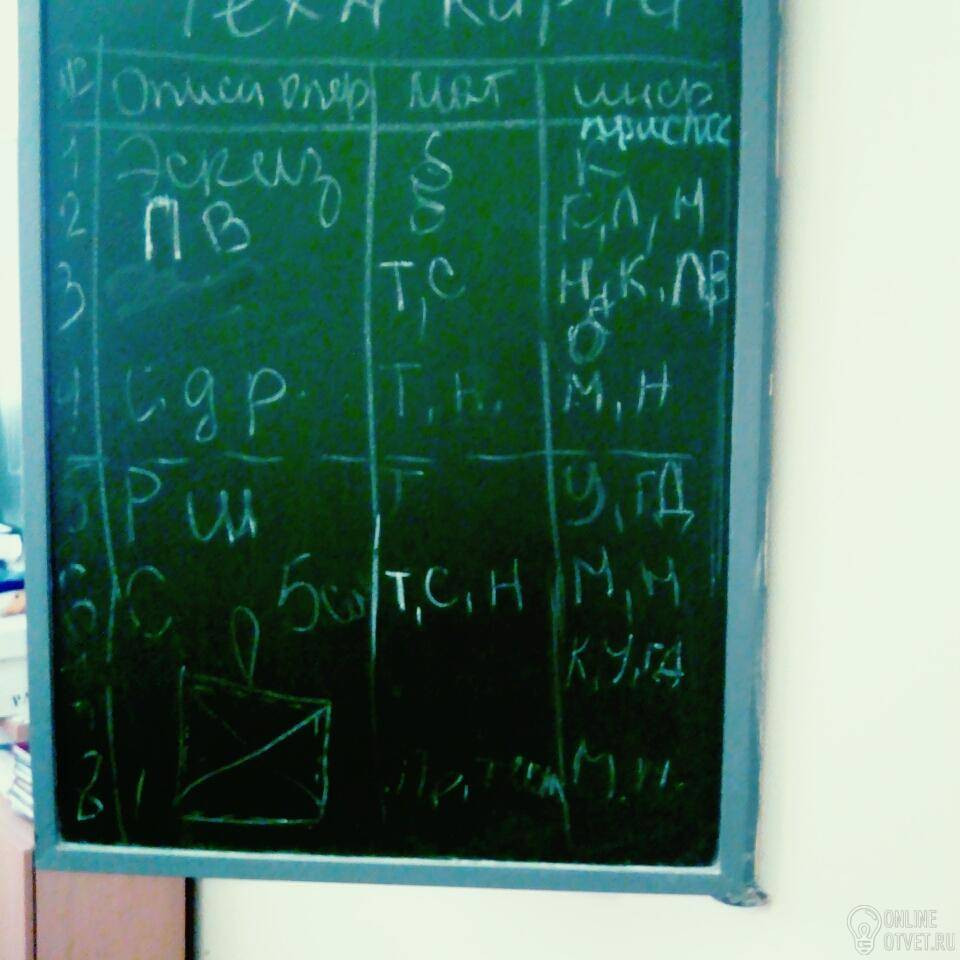 Техн карта
№ Описа опер мат инф
присп
1 Эскиз б К
2 ПВ б К, Л, М
3 Т, С Н, К, ЛВ
4 С д р. Т, н, М, Н
5 Р ш Т У, ГД
6 С 5см Т, С, Н М, м
К, У, ГД
8 М, н.
ONLINE
OTVET.RU